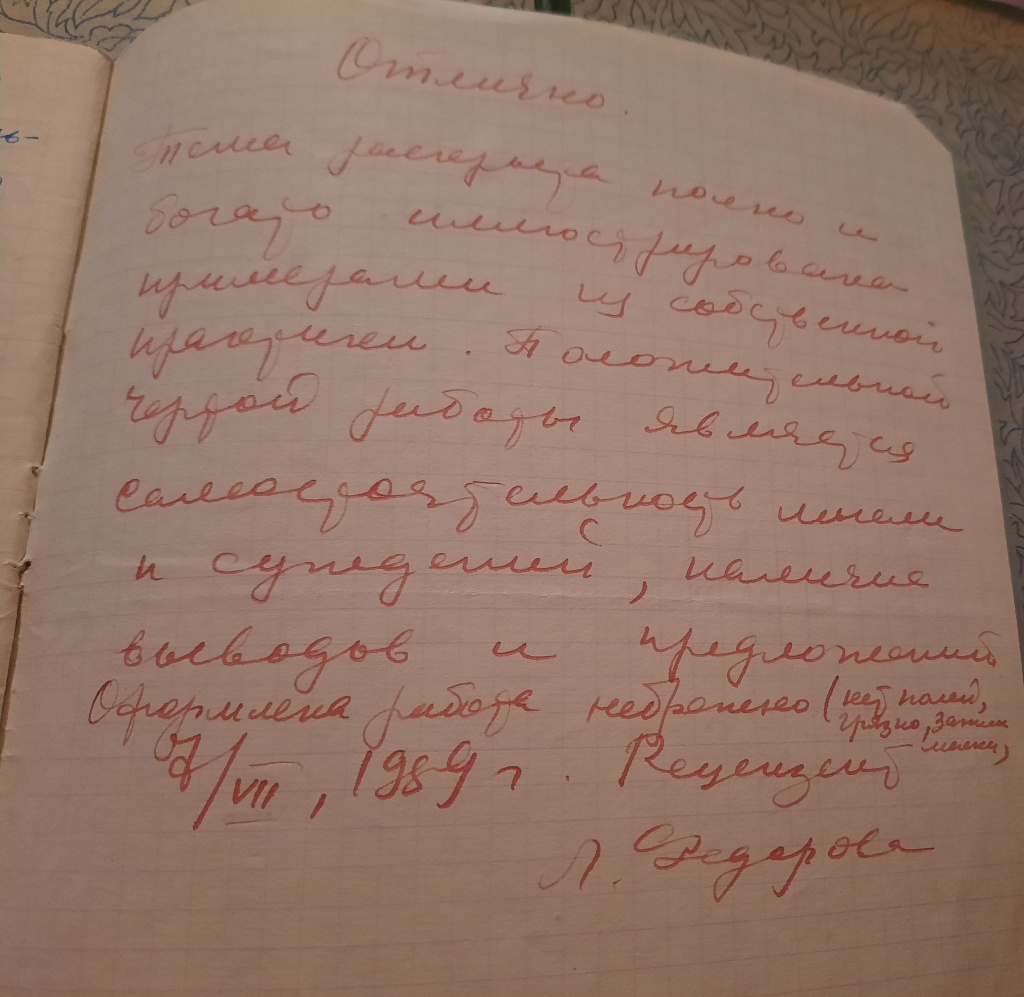 ь-
Отлично.
Тема раскрыта полно и
богато иллюстрирована
примерами из собственной
практики. Положительной
чертой работы является
самостоятельность мысли
и суждений, наличие
выводов и предложений
Оформлена работа небрежно (нет полей,
грязно,
7/VII, 1989 г. Рецензент
Л. Федорова